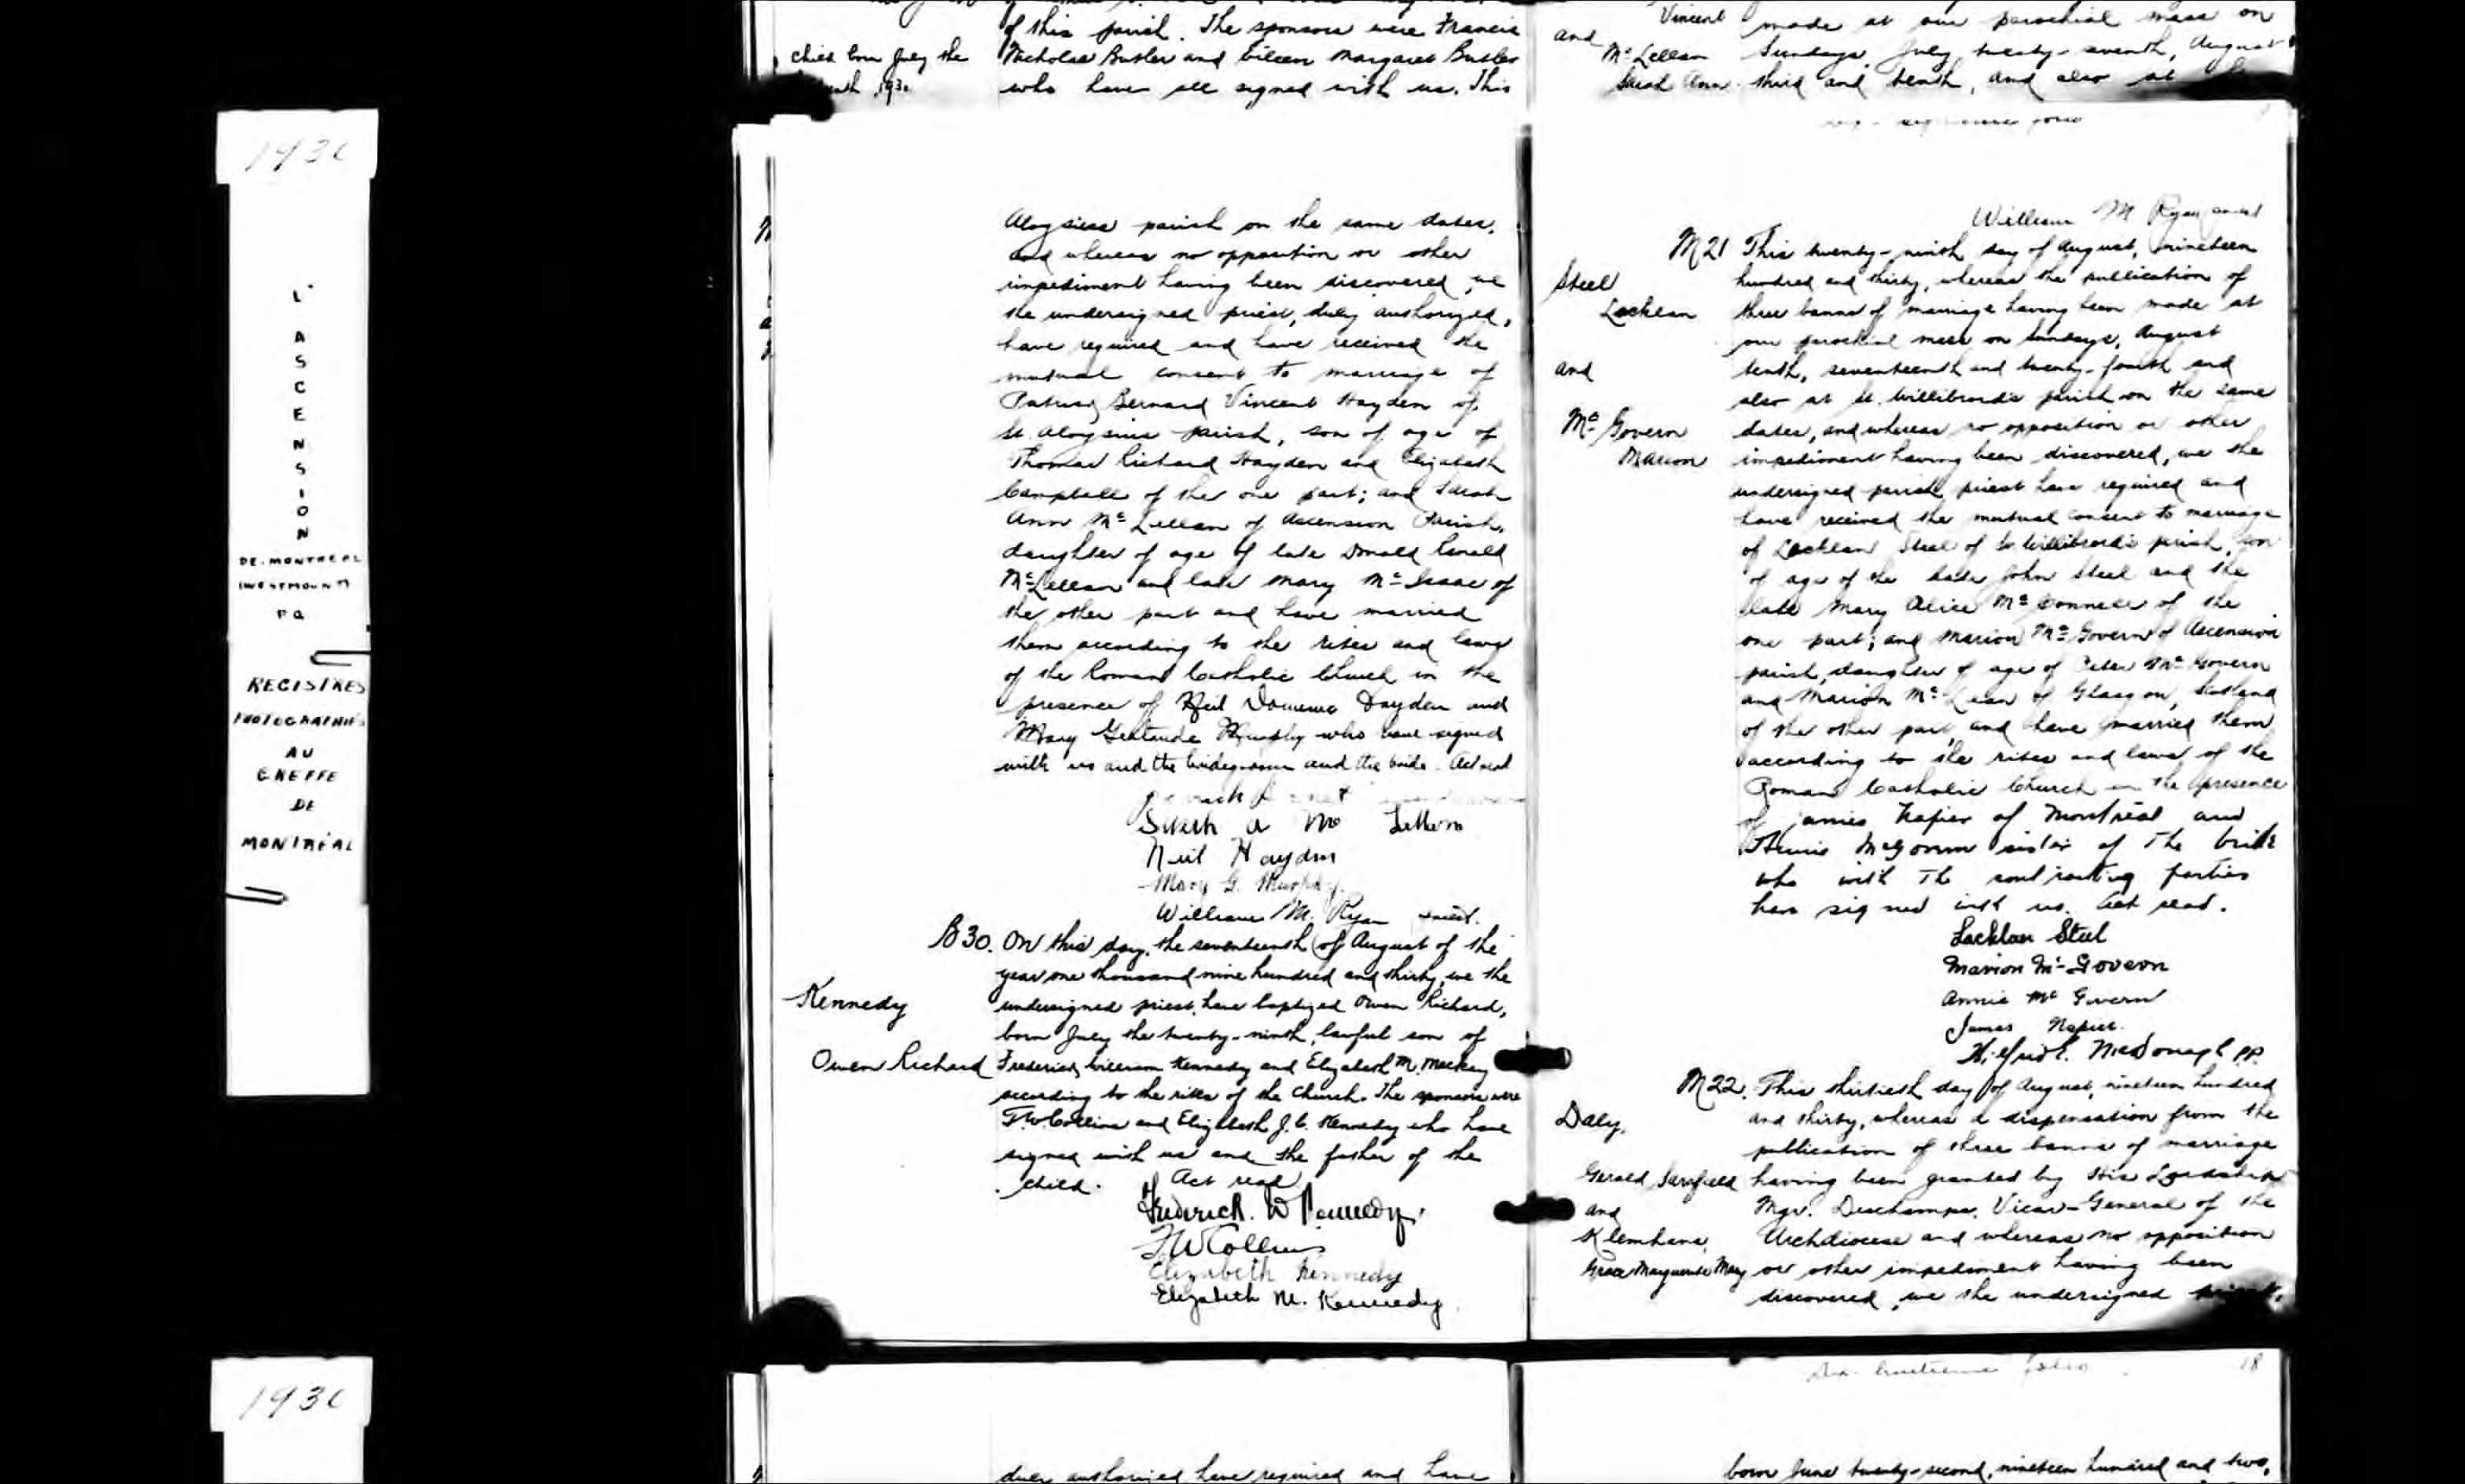 193
L'
A
S
C
E
N
S
I
O
N
DE-MONTREAL
(WESTMOUNT)
P Q
REGISTRES
PHOTOGRAPHIÉS
AU
GREFFE
DE
MONTRÉAL
193
of this parish. The sponsors were Francis
child born July the
Nicholas Butler and Eileen Margaret Butler
193
who have all signed with us. This
Aloysius parish on the same dates,
and whereas no opposition or other
impediment having been discovered, we
the undersigned priest, duly authorized,
have required and have received the
mutual consent to marriage of
Patrick Bernard Vincent Hayden of
St. Aloysius parish, son of age of
Thomas Richard Hayden and Elizabeth
Campbell of the one part; and Sarah
Ann McLellan of Ascension Parish,
daughter of age of late Donald
McLellan and late Mary McIsaac of
the other part and have married
them according to the rites and laws
of the Roman Catholic Church in the
presence of Neil Hayden and
Mary Gertrude Murphy who have signed
with us and the bridegroom and the bride. Act read
Sarah A Mc Lellan
Neil Hayden
Mary G. Murphy.
William M. Ryan priest.
B30. On this day, the seventeenth of August of the
year one thousand nine hundred and thirty, we the
Kennedy
undersigned priest, have baptized Owen Richard,
born July the twenty-ninth, lawful son of
Owen Richard
Frederick William Kennedy and Elizabeth M. Mackay
according to the rites of the Church. The sponsors were
F.W. Collins and Elizabeth J. C. Kennedy who have
signed with us and the father of the
child. Act read
Frederick. W Kennedy.
F W Collins
Elizabeth Kennedy
Elizabeth M. Kennedy.
duly authorized have required and have
Vincent made at our parochial mass on
and
McLellan Sundays, July twenty-seventh, August
Sarah Ann. third and tenth, and also at
William M Ryan priest
M21 This twenty-ninth day of August, nineteen
Steel
hundred and thirty, whereas the publication of
Lachlan three banns of marriage having been made at
our parochial mass on Sundays, August
and
tenth, seventeenth and twenty-fourth and
also at St. Willibrord's parish on the same
McGovern
dates, and whereas no opposition or other
Marion
impediment having been discovered, we the
undersigned parish priest have required and
have received the mutual consent to marriage
of Lachlan Steel of St. Willibrord's parish, son
of age of the late John Steel and the
late Mary Alice McDonnell of the
one part; and Marion McGovern of Ascension
parish, daughter of age of Peter McGovern
and Marion McLean of Glasgow, Scotland
of the other part, and have married them
according to the rites and laws of the
Roman Catholic Church in the presence
of James Napier of Montreal and
Annie McGovern sister of the bride
who with the contracting parties
have signed with us. Act read.
Lachlan Steel
Marion McGovern
Annie McGovern
James Napier.
McDonagh P.P.
M22. This thirtieth day of August, nineteen hundred
Daly,
and thirty, whereas a dispensation from the
publication of three banns of marriage
Gerald Sarsfield having been granted by His Lordship
and
Mgr. Deschamps, Vicar-General of the
Klemhans,
Archdiocese and whereas no opposition
Grace Marguerite Mary or other impediment having been
discovered, we the undersigned priest,
18
born June twenty-second, nineteen hundred and two,